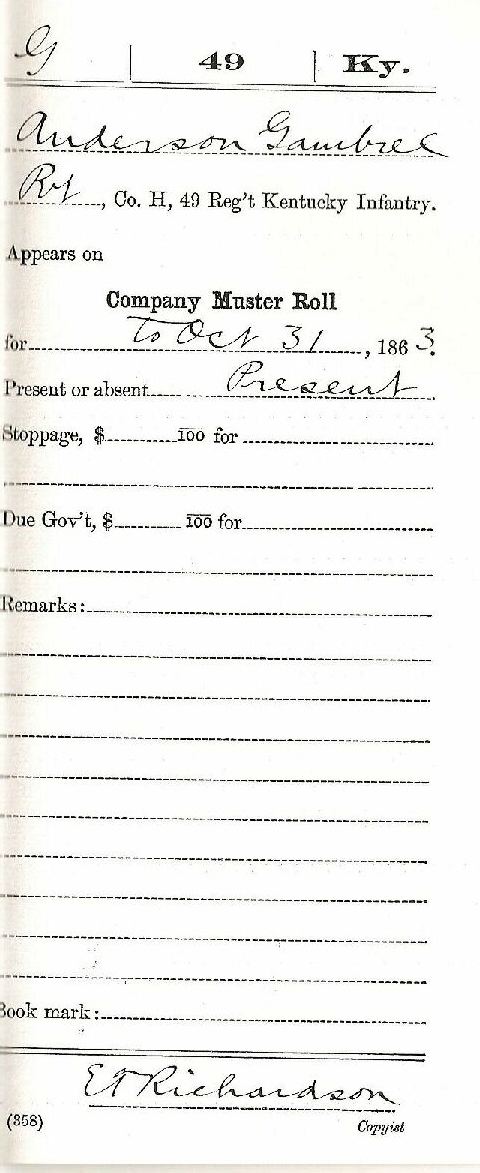 G | 49 | Ky.
Anderson Gambrel
Pvt, Co. H, 49 Reg't Kentucky Infantry.
Appears on
Company Muster Roll
for to Oct 31, 1863.
Present or absent Present
Stoppage, $ 100 for
Due Gov't, $ 100 for
Remarks:
Book mark:
E T Richardson
(358) Copyist